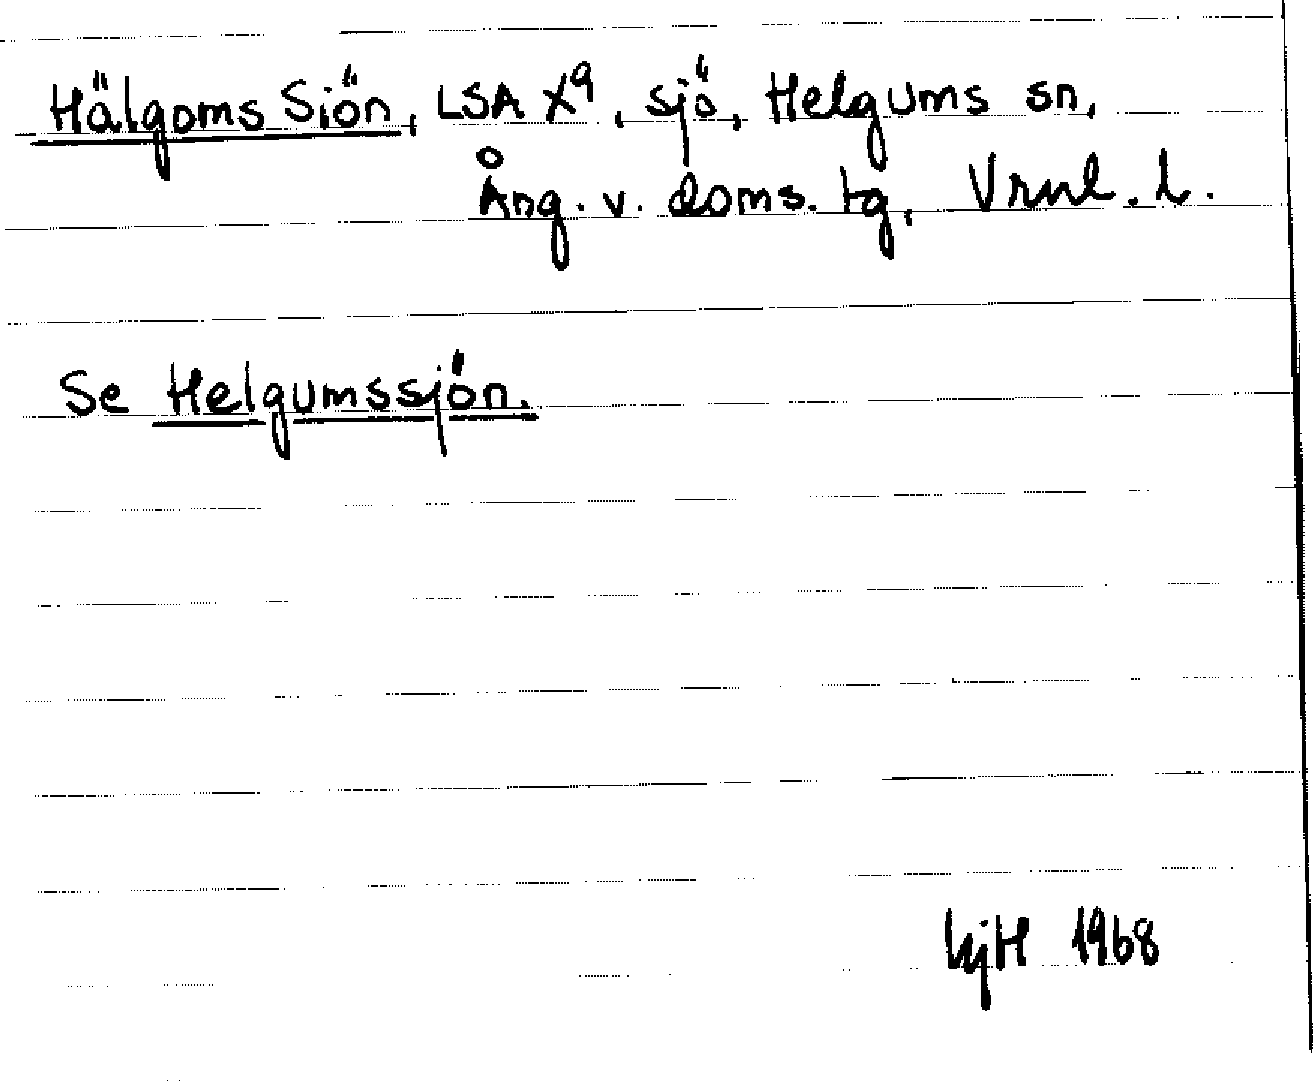 Hälgoms Siön, LSA X9, sjö, Helgums sn,
Ång. v. doms. tg, Vrnl. l.
Se Helgumssjön.
1968